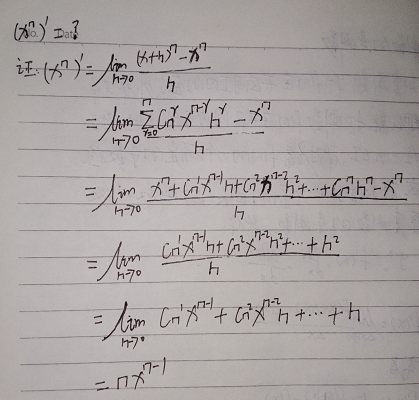 (xⁿ)' = ?
证: (xⁿ)' = lim h→0 ((x+h)ⁿ - xⁿ) / h
= lim h→0 (Σ r=0 n Cₙʳ xⁿ⁻ʳ hʳ - xⁿ) / h
= lim h→0 (xⁿ + Cₙ¹xⁿ⁻¹h + Cₙ²xⁿ⁻²h² + ··· + Cₙⁿhⁿ - xⁿ) / h
= lim h→0 (Cₙ¹xⁿ⁻¹h + Cₙ²xⁿ⁻²h² + ··· + h²) / h
= lim h→0 Cₙ¹xⁿ⁻¹ + Cₙ²xⁿ⁻²h + ··· + h
= nxⁿ⁻¹